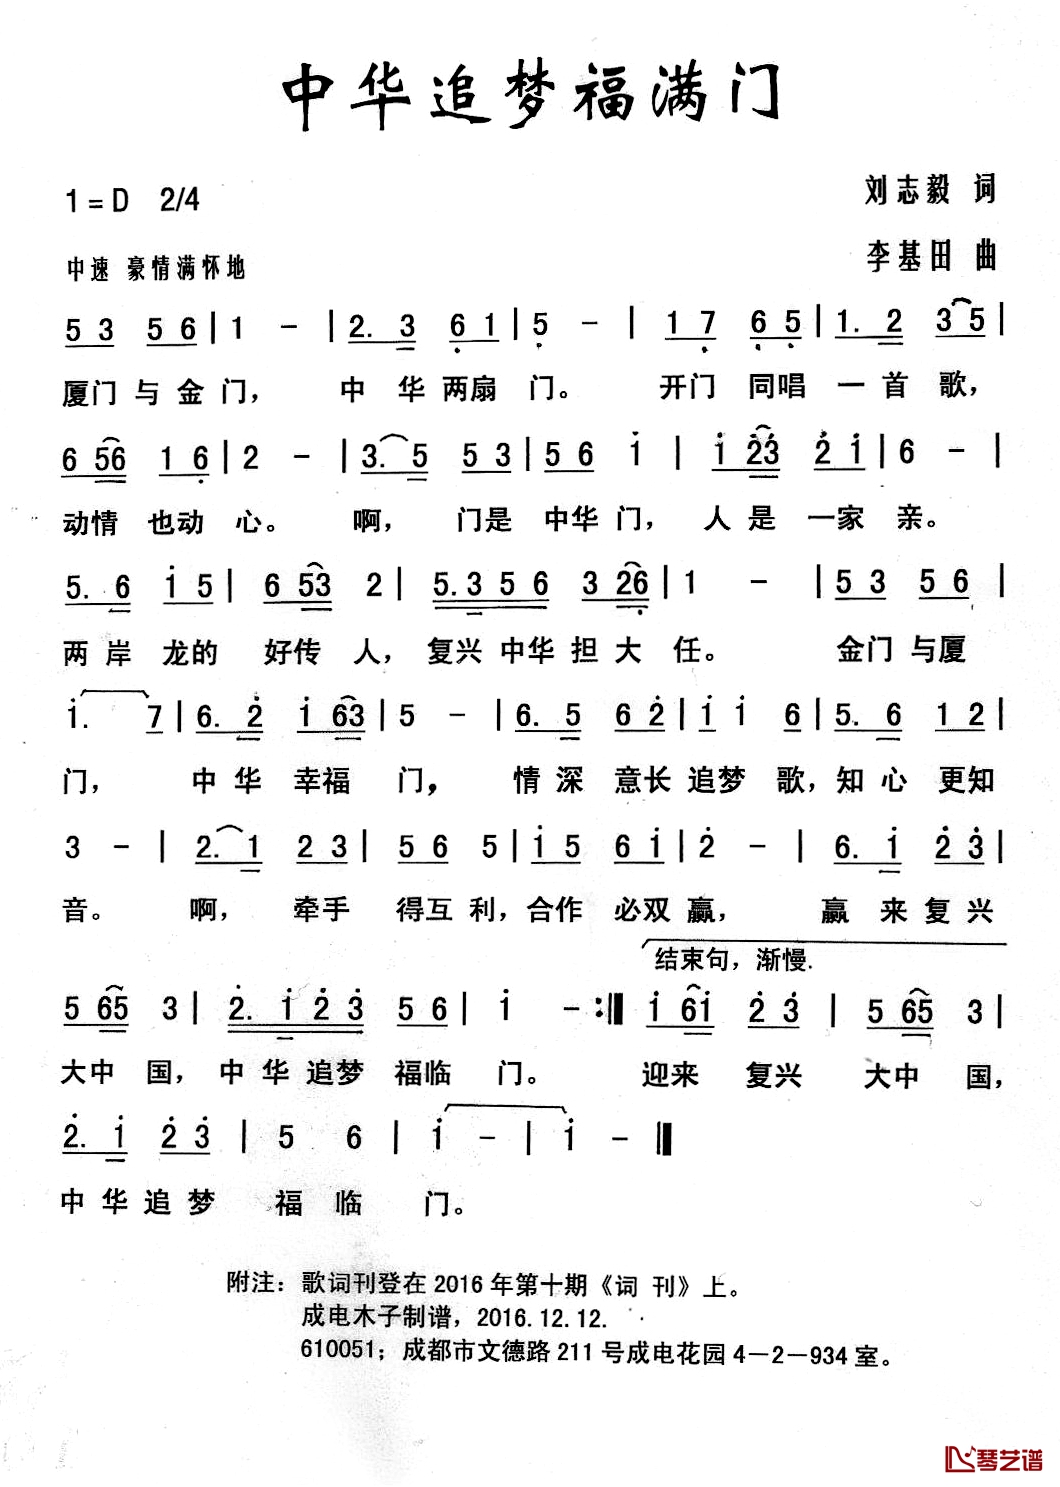 中华追梦福满门
1=D 2/4
刘志毅 词
中速 豪情满怀地
李基田 曲
5 3 5 6 | 1 - | 2. 3 6̣ 1 | 5̣ - | 1 7̣ 6̣ 5̣ | 1. 2 3 5 |
厦门 与 金 门， 中 华 两扇 门。 开门 同唱 一 首 歌，
6 56 1 6̣ | 2 - | 3. 5 5 3 | 5 6 i | i 2̇3̇ 2̇ i | 6 - |
动情 也动 心。 啊， 门是 中华 门， 人 是 一家 亲。
5. 6 i 5 | 6 53 2 | 5.3 5 6 3 26̣ | 1 - | 5 3 5 6 |
两 岸 龙的 好传 人， 复兴 中华 担 大 任。 金门 与厦
i. 7 | 6. 2̇ i 63 | 5 - | 6. 5 6 2̇ | i i 6 | 5. 6 1 2 |
门， 中 华 幸福 门， 情 深 意长 追梦 歌，知 心 更知
3 - | 2. 1 2 3 | 5 6 5 | i 5 6 i | 2̇ - | 6. i 2̇ 3̇ |
音。 啊， 牵手 得互 利，合作 必双 赢， 赢 来 复兴
结束句，渐慢.
5 65 3 | 2̇. i 2̇ 3̇ 5 6 | i - :‖ i 6i 2̇ 3̇ | 5 65 3 |
大中 国， 中 华 追梦 福临 门。 迎来 复兴 大中 国，
2̇. i 2̇ 3̇ | 5 6 | i - | i - ‖
中 华 追 梦 福 临 门。
附注：歌词刊登在2016年第十期《词 刊》上。
成电木子制谱，2016.12.12.
610051；成都市文德路211号成电花园4－2－934室。
琴艺谱